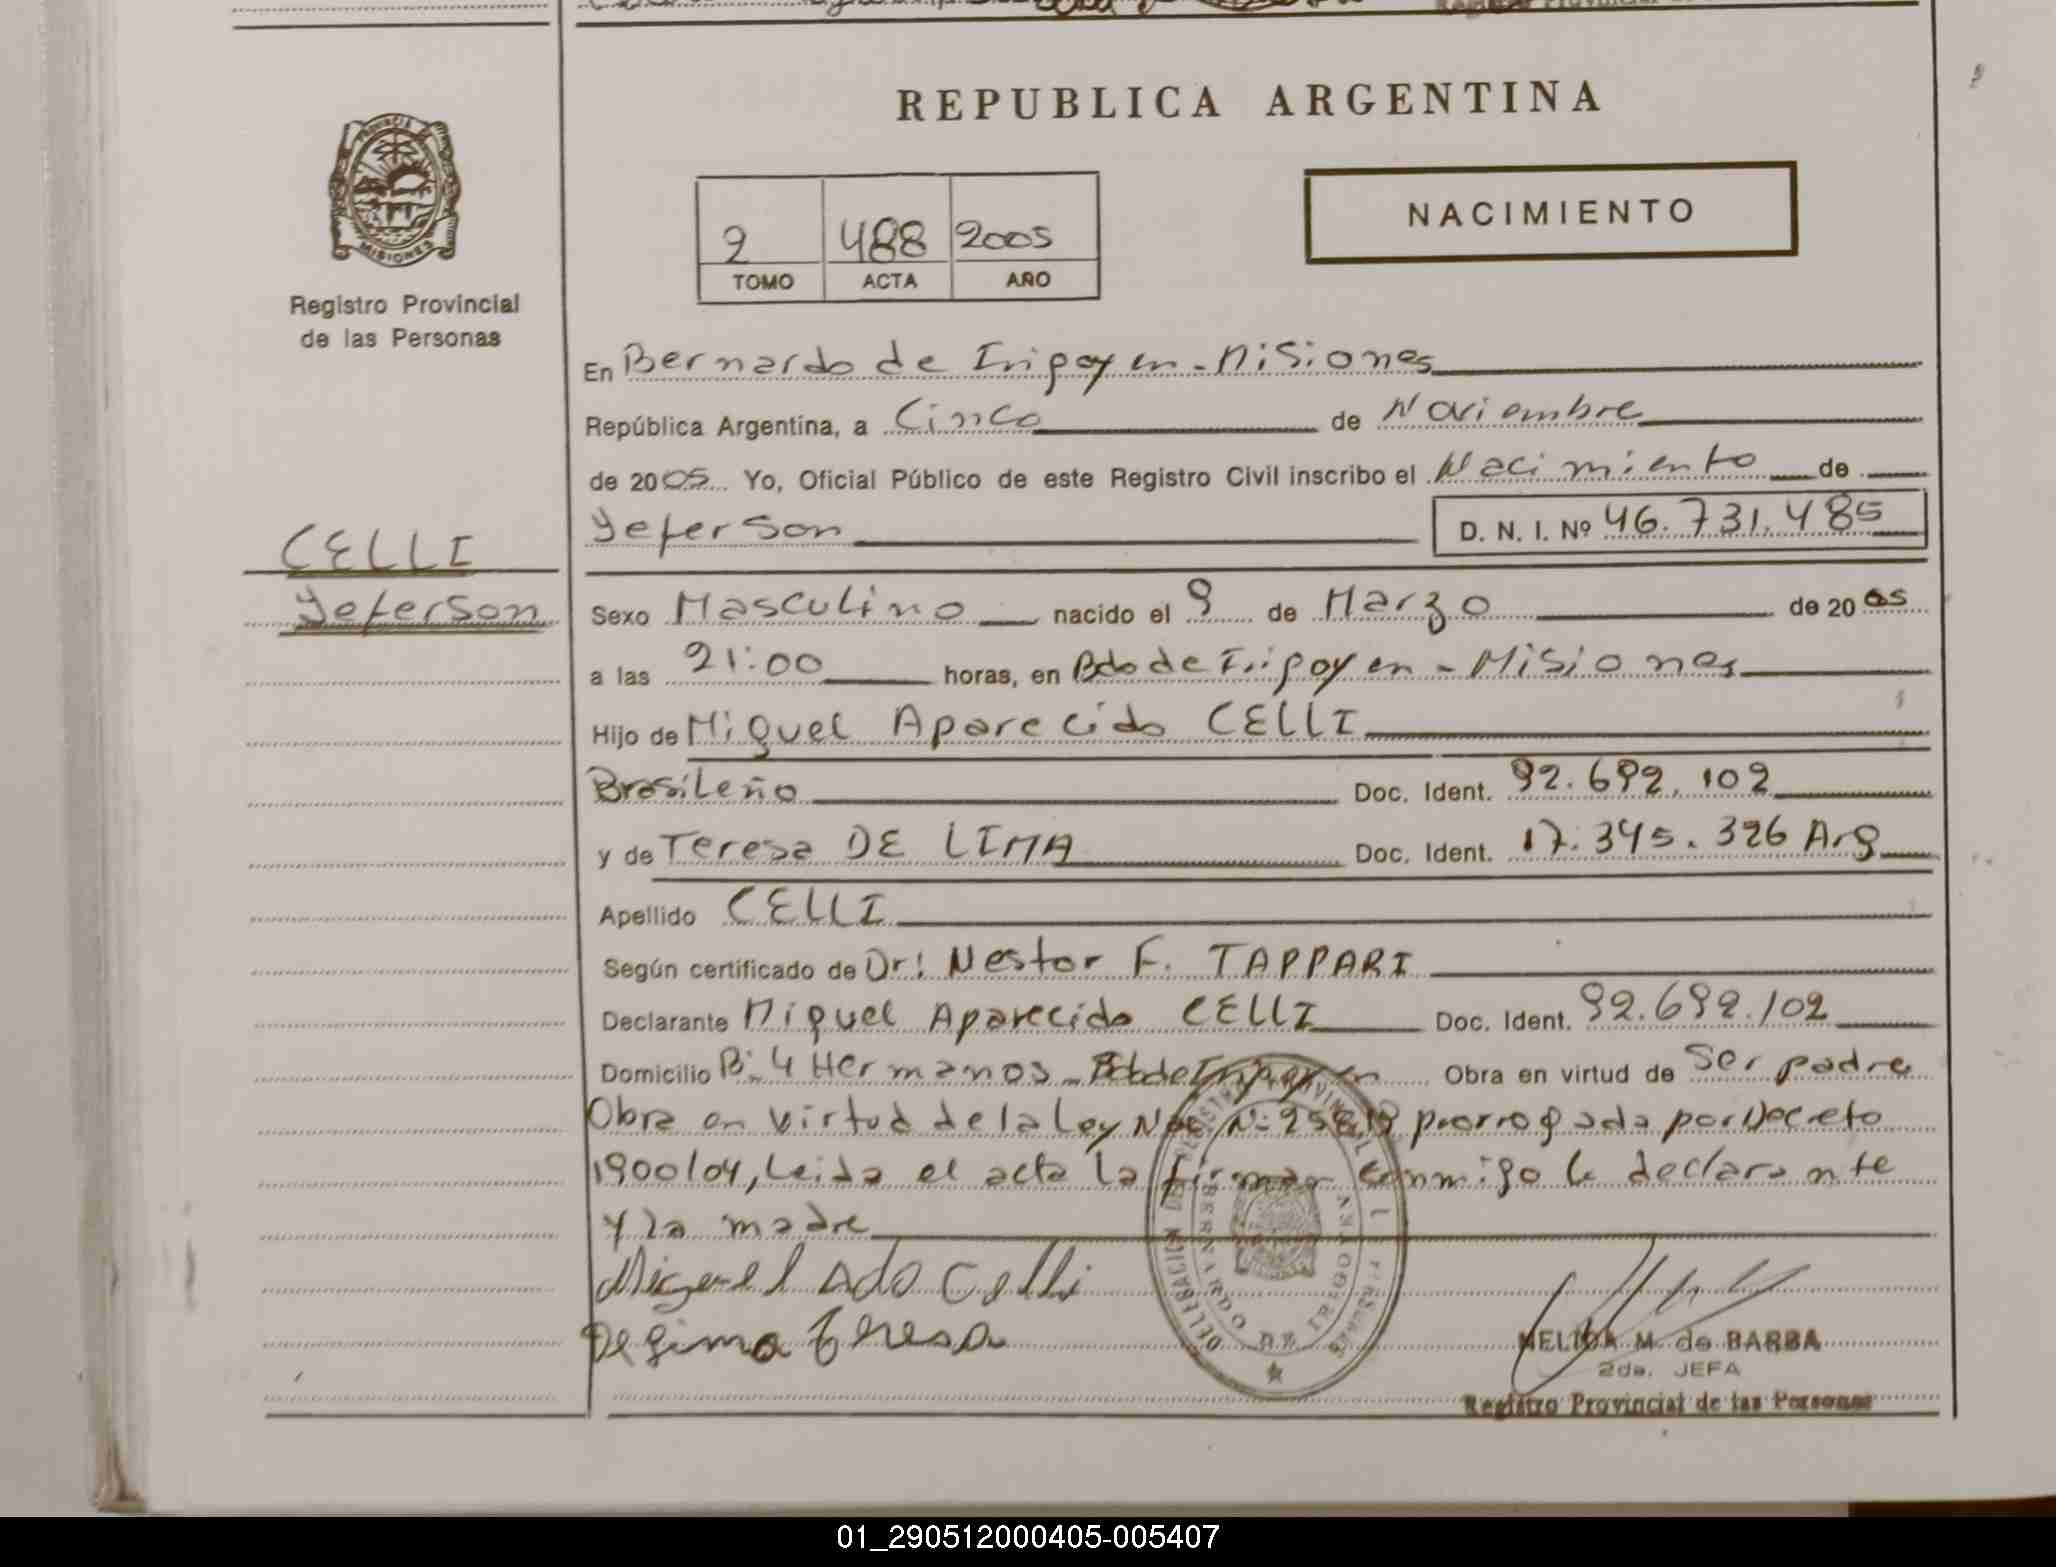 REPUBLICA ARGENTINA
PROVINCIA DE
MISIONES
Registro Provincial
de las Personas
2 488 2005
TOMO ACTA AÑO
NACIMIENTO
En Bernardo de Irigoyen - Misiones
República Argentina, a Cinco de Noviembre
de 2005 Yo, Oficial Público de este Registro Civil inscribo el Nacimiento de
Yeferson D. N. I. Nº 46.731.485
CELLI
Yeferson
Sexo Masculino nacido el 9 de Marzo de 2005
a las 21:00 horas, en Bdo de Irigoyen - Misiones
Hijo de Miguel Aparecido CELLI
Brasileño Doc. Ident. 92.692.102
y de Teresa DE LIMA Doc. Ident. 17.345.326 Arg
Apellido CELLI
Según certificado de Dr: Nestor F. TAPPARI
Declarante Miguel Aparecido CELLI Doc. Ident. 92.692.102
Domicilio Bº 4 Hermanos - Bdo de Irigoyen Obra en virtud de Ser padre
Obra en virtud de la Ley Nac Nº 25819 prorrogada por Decreto
1900/04, Leida el acta la firman conmigo le declarante
y la madre
Miguel Ado Celli
De Lima Teresa
DELEGACION REGISTRO PROVINCIAL PERSONAS
BERNARDO DE IRIGOYEN
NELIDA M. de BARBA
2da. JEFA
Registro Provincial de las Personas
01_290512000405-005407